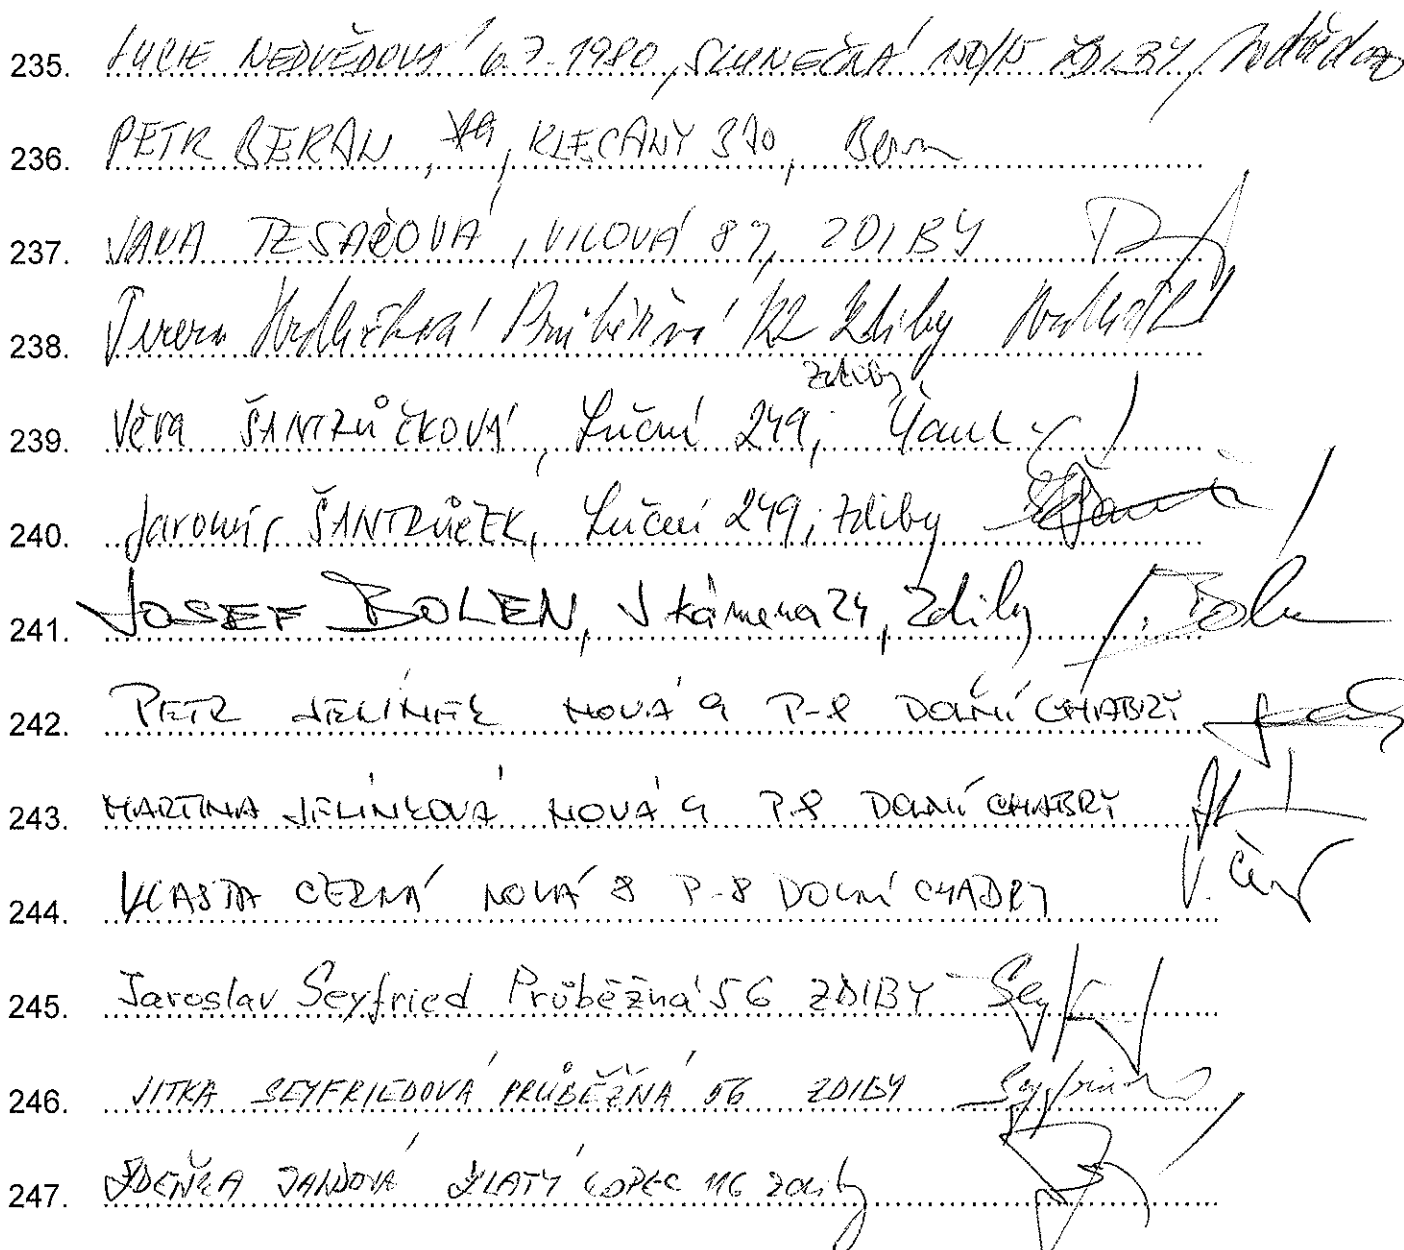 235. LUCIE NEDVĚDOVÁ 6.7.1980, SLUNEČNÁ 150/15 ZDIBY
236. PETR BERAN, KLECANY 370, Beran
237. JANA TESAŘOVÁ, VILOVÁ 87, ZDIBY
238. Tereza Hrdličková Průběžná 122 Zdiby
Zdiby
239. Věra ŠANTRŮČKOVÁ, Luční 249,
240. Jaromír ŠANTRŮČEK, Luční 249, Zdiby
241. JOSEF BOLEN, U kamena 24, Zdiby
242. PETR JELÍNEK NOVÁ 9 P-8 DOLNÍ CHABRY
243. MARTINA JELÍNKOVÁ NOVÁ 9 P-8 DOLNÍ CHABRY
244. VLASTA ČERNÁ NOVÁ 8 P-8 DOLNÍ CHABRY
245. Jaroslav Seyfried Průběžná 56 ZDIBY
246. JITKA SEYFRIEDOVÁ PRŮBĚŽNÁ 56 ZDIBY
247. ZDEŇKA JANDOVÁ ZLATÝ KOPEC 116 Zdiby